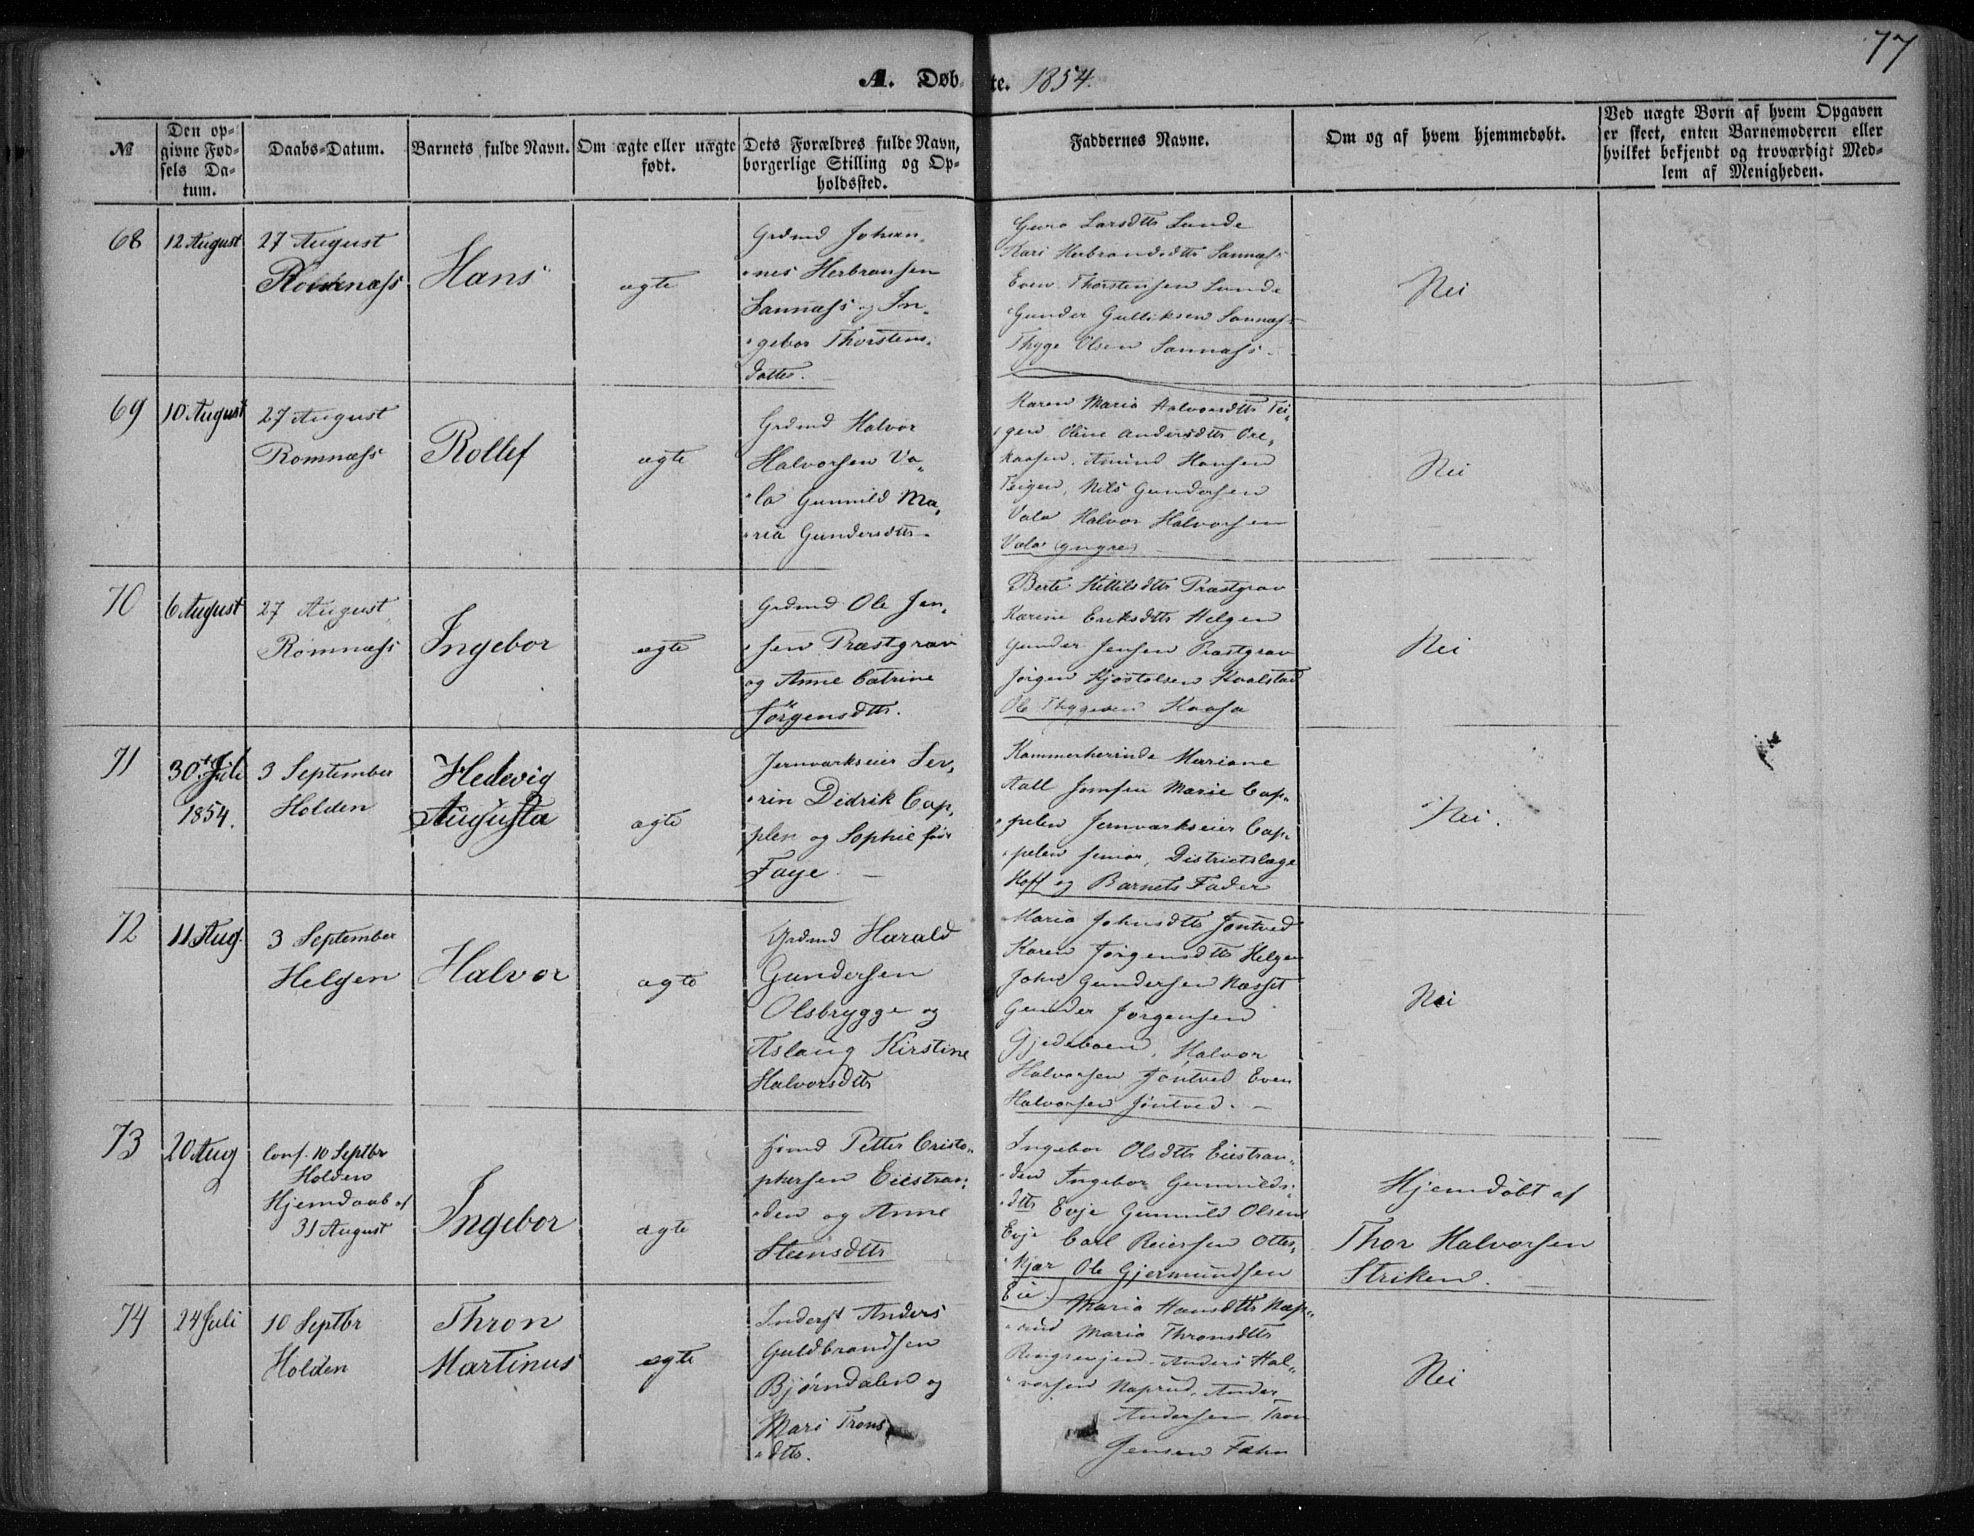 77
A. Døb- te. 1854.
№
Den op-
givne Fød-
sels Da-
tum.
Daabs-Datum.
Barnets fulde Navn.
Om ægte eller uægte
født.
Dets Forældres fulde Navn,
borgerlige Stilling og Op-
holdssted.
Faddernes Navne.
Om og af hvem hjemmedøbt.
Ved uægte Børn af hvem Opgaven
er skeet, enten Barnemoderen eller
hvilket bekjendt og troværdigt Med-
lem af Menigheden.
68
12 August
27 August
Romnæss
Hans
ægte
Grdmd Johan-
nes Herbransen
Sannæss og In-
gebor Thorstens-
datter.
Guro Larsdtt Lunde
Kari Herbrandsdtt Sannæss
Even Thorstensen Lunde
Gunder Gulliksen Sannæss
Thyge Olsen Sannæss
Nei
69
10 August
27 August
Romnæss
Rollef
ægte
Grdmd Halvor
Halvorsen Va-
la Gunnild Ma-
ria Gundersdtt.
Karen Maria Halvorsdtt Tei-
gen Oline Andersdtt Ore-
kaasen, Amund Hansen
Teigen, Nils Gundersen
Vala Halvor Halvorsen
Vala (yngre)
Nei
70
6 August
27 August
Romnæss
Ingebor
ægte
Grdmd Ole Jen-
sen Præstgrav
og Anne Catrine
Jørgensdtt.
Berte Kittilsdtt Præstgrav
Karine Eriksdtt Helgen
Gunder Jensen Præstgrav
Jørgen Kjøstolsen Kvalstad
Ole Thygesen Kaasa
Nei
71
30te Juli
1854.
3 September
Holden
Hedevig
Augusta
ægte
Jernværkseier Se-
rin Didrik Cap-
plen og Sophie født
Faye.
Kammerherinde Mariane
Aall Jomfru Marie Cap-
pelen Jernværkseier Cap-
pelen senior, Districtslæge
Hoff og Barnets Fader
Nei.
72
11 Aug.
3 September
Helgen
Halvor
ægte
Grdmd Harald
Gundersen
Olsbrygge og
Aslaug Kirstine
Halvorsdtt
Maria Johnsdtt Jøntved
Karen Jørgensdtt Helgen
John Gundersen Næsset
Gunder Jørgensen
Gjedeboen, Halvor
Halvorsen Jøntved Even
Halvorsen Jøntved.
Nei
73
20 Aug
Conf. 10 Septbr
Holden
Hjemdaab af
31 August
Ingebor
ægte
Petter Cristo-
phersen Eiestran-
den og Anne
Steensdtt
Ingebor Olsdtt Eiestran-
den Ingebor Gunnulds-
dtt Eeje Gunnuld Olsen
Eeje Carl Reiersen Otter-
kjær Ole Gjermundsen
Eie
Hjemdøbt af
Thor Halvorsen
Striken.
74
24 Juli
10 Septbr
Holden
Thron
Martinus
ægte
Inderst Anders
Guldbrandsen
Bjørndalen og
Mari Trons
dtt.
Maria Hansdtt Nap-
rud Maria Thronsdtt
Anders Hal-
vorsen Naprud, Ander
Andersen, Tron
Jensen Fæhn
Nei